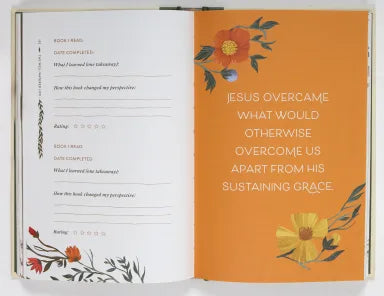 BOOK I READ:
DATE COMPLETED:
What I learned (one takeaway):
How this book changed my perspective:
Rating:
BOOK I READ
DATE COMPLETED
What I learned (one takeaway):
How this book changed my perspective:
Rating:
JESUS OVERCAME
WHAT WOULD
OTHERWISE
OVERCOME US
APART FROM HIS
SUSTAINING GRACE.